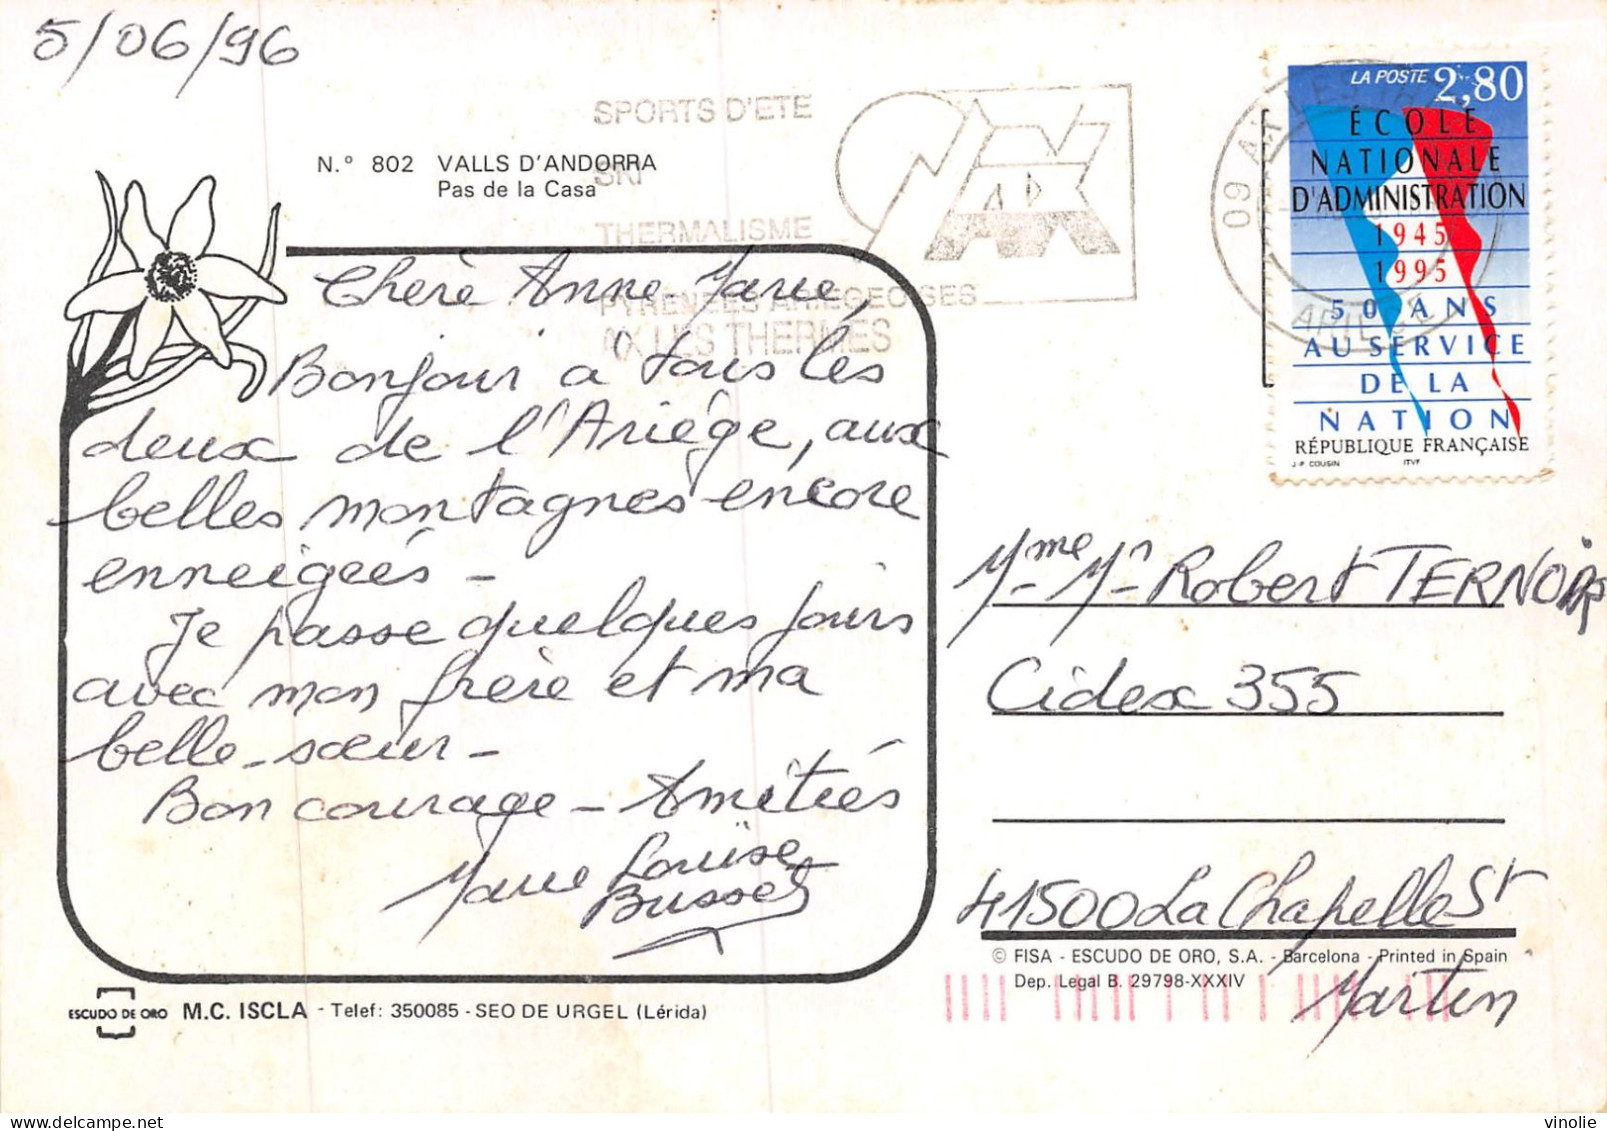 5/06/96
N.º 802 VALLS D'ANDORRA
Pas de la Casa
SPORTS D'ETE
SKI
THERMALISME
PYRENEES ARIEGEOISES
AX LES THERMES
AX
09 AX LES THERMES
ARIEGE
LA POSTE 2,80
ÉCOLE
NATIONALE
D'ADMINISTRATION
1945
1995
50 ANS
AU SERVICE
DE LA
NATION
RÉPUBLIQUE FRANÇAISE
J-P. COUSIN ITVF
Chère Anne Marie,
Bonjour à tous les
deux de l'Ariège, aux
belles montagnes encore
enneigées -
Je passe quelques jours
avec mon frère et ma
belle-sœur -
Bon courage - Amitiés
Marie Louise
Busset
Mme Mr Robert TERNOIS
Cidex 355
41500 La Chapelle St
Martin
© FISA - ESCUDO DE ORO, S.A. - Barcelona - Printed in Spain
Dep. Legal B. 29798-XXXIV
ESCUDO DE ORO M.C. ISCLA - Telef: 350085 - SEO DE URGEL (Lérida)
vinolie